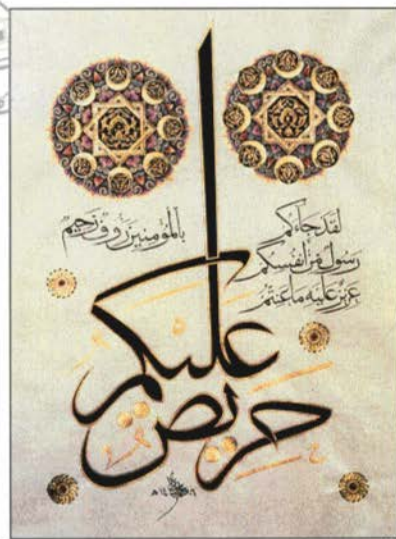 لقد جاءكم
رسول من أنفسكم
عزيز عليه ما عنتم
حريص
عليكم
بالمؤمنين رؤوف رحيم